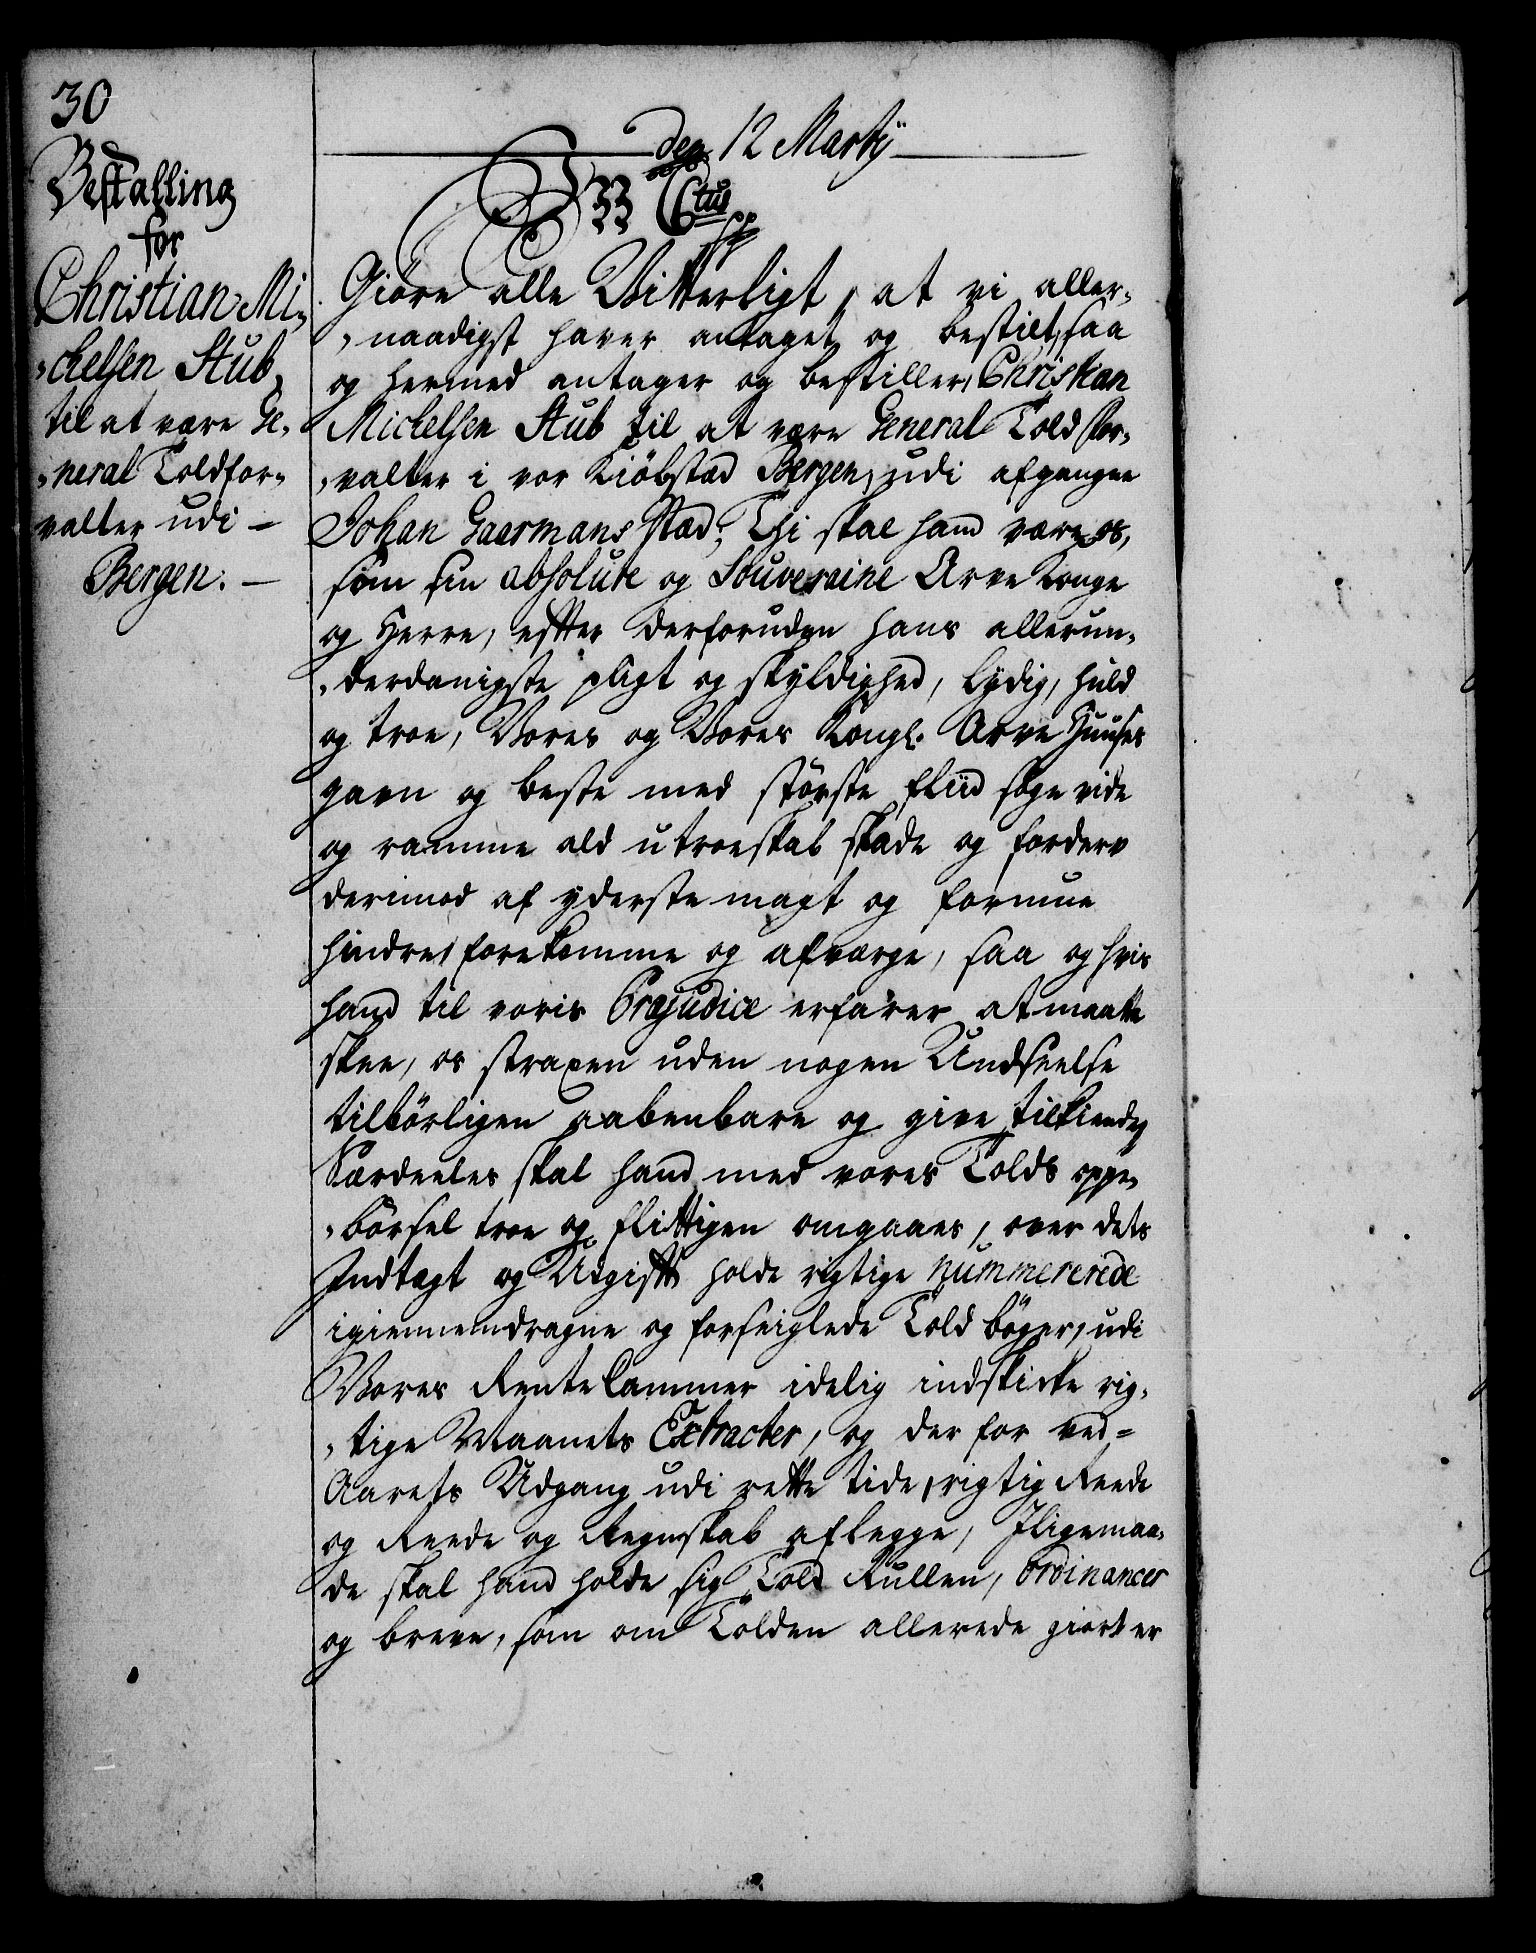 30
den 12 Martij
Bestalling
for
Christian Mi-
-chelsen Stub,
til at være Ge-
-neral Toldfor-
valter udi -
Bergen. -
C 6tus
Giöre alle Vitterligt, at vi aller-
-naadigst haver antaget og bestilt, saa
og hermed antager og bestiller, Christian
Michelsen Stub til at være General Told for-
-valter i vor Kiöbstad Bergen, udi afgangne
Johan Gaarmans stæd; Thi skal hand være os,
som sin absolute og Souveraine Arve Konge
og Herre, efter derforuden hans allerun-
-derdanigste pligt og skyldighed, lydig, huld
og troe, Vores og Vores Kongl. Arve Huuses
gavn og beste med störste fliid söge vide
og ramme ald utroeskab skade og forderv
derimod af yderste magt og formue
hindre, forekomme og afværge, saa og hvis
hand til voris Præjudice erfarer at maatte
skee, os straxen uden nogen Undseelse
tilbörligen aabenbare og give tilkiende,
Særdeeles skal hand med vores Tolds oppe-
-börsel troe og flittigen omgaaes, over dets
Indtægt og Udgift holde rigtige nummererede
igiennemdragne og forseiglede Told böger, udi
Vores Rente Cammer idelig indskicke rig-
-tige Maanets Extracter, og der for ved=
Aarets Udgang udi rette tide, rigtig Reede
og Reede og Regnskab aflegge, Iligemaa-
de skal hand holde sig Told Rullen, Ordinancer
og breve, som om Tolden allerede giort er